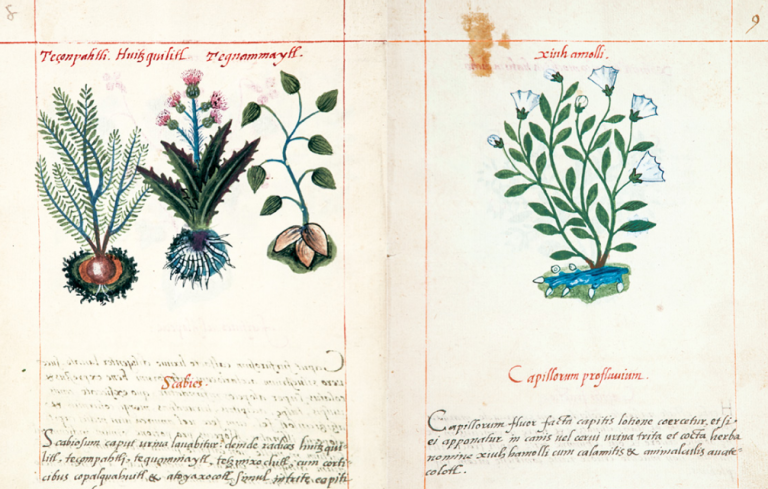 Teçonpahtli. Huitzquilitl Tequammaytl.
Scabies.
Scabiosum caput urina lauabitur: deinde radices huitzqui-
litl, teçompahtli, tequammaytl, tetzmixochitl, cum corti
cibus copalquahuitl & atoyaxocotl simul tritę, capiti
9
xiuhamolli.
Capillorum profluuium.
Capillorum fluor facta capitis lotione coercetur, et si
ei apponatur in canis uel cerui urina trita et cocta herba
nomine xiuhhamolli cum calamitis & animalculis auate-
colotl.